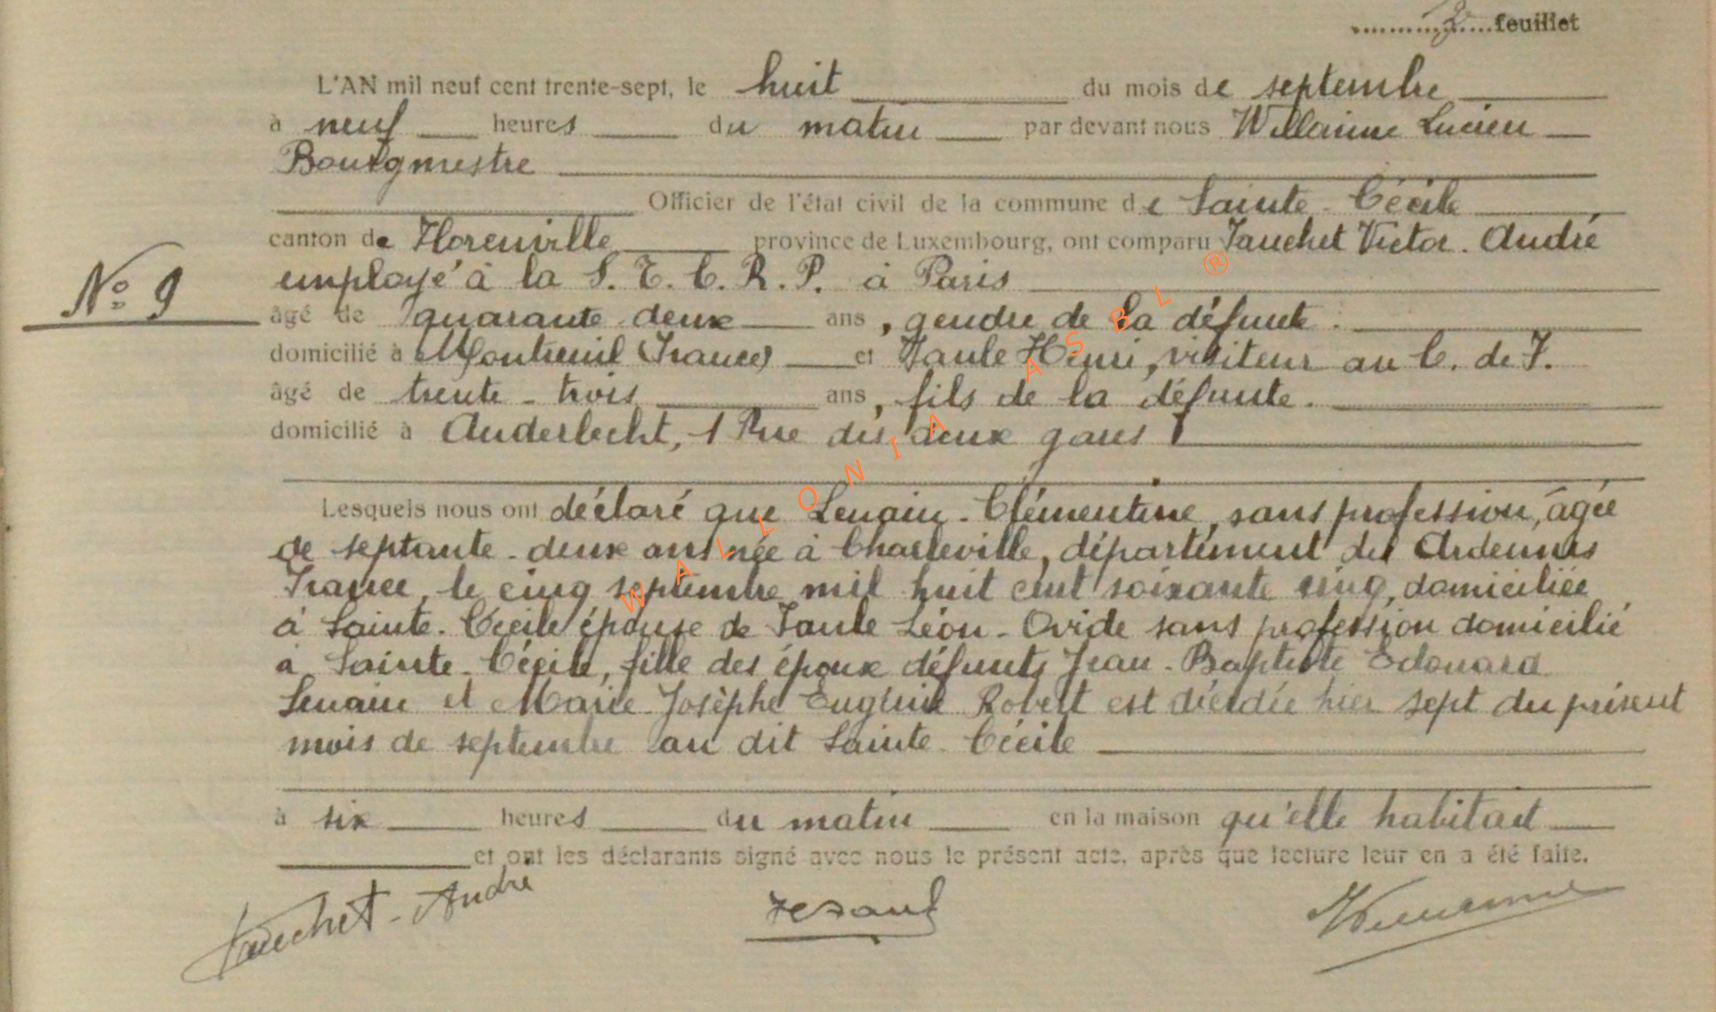 3 feuillet
L'AN mil neuf cent trente-sept, le huit du mois de septembre
à neuf heures du matin par devant nous Willaime Lucien
Bourgmestre
Officier de l'état civil de la commune de Sainte-Cécile
canton de Florenville province de Luxembourg, ont comparu Fauchet Victor-André
employé à la S. T. C. R. P. à Paris
âgé de quarante deux ans, gendre de la défunte.
domicilié à Montreuil (France) et Henri, visiteur au C. de F.
âgé de trente-trois ans, fils de la défunte.
domicilié à Anderlecht, 1 Rue des deux gares
Lesquels nous ont déclaré que Lenain-Clémentine, sans profession, âgée
de septante-deux ans née à Charleville, département des Ardennes
France, le cinq septembre mil huit cent soixante cinq, domiciliée
à Sainte-Cécile épouse de Léon-Ovide sans profession domicilié
à Sainte-Cécile, fille des époux défunts Jean-Baptiste Edouard
Lenain et Marie-Josèphe Eugénie Robert est décédée hier sept du présent
mois de septembre au dit Sainte-Cécile
à six heures du matin en la maison qu'elle habitait
et ont les déclarants signé avec nous le présent acte, après que lecture leur en a été faite.
No 9
Fauchet-André
WALLONIA ASBL ®